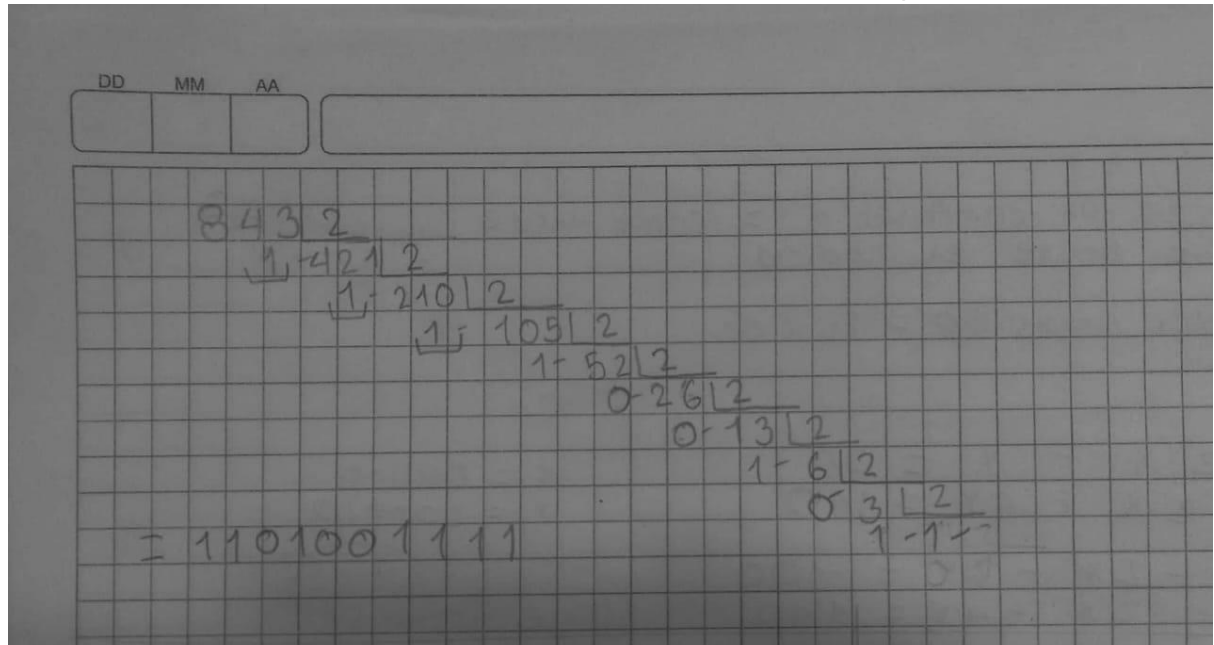 DD MM AA
843 2
1 - 421 2
1 - 210 2
1 - 105 2
1 - 52 2
0 - 26 2
0 - 13 2
1 - 6 2
0 - 3 2
1 - 1 -
= 1101001111